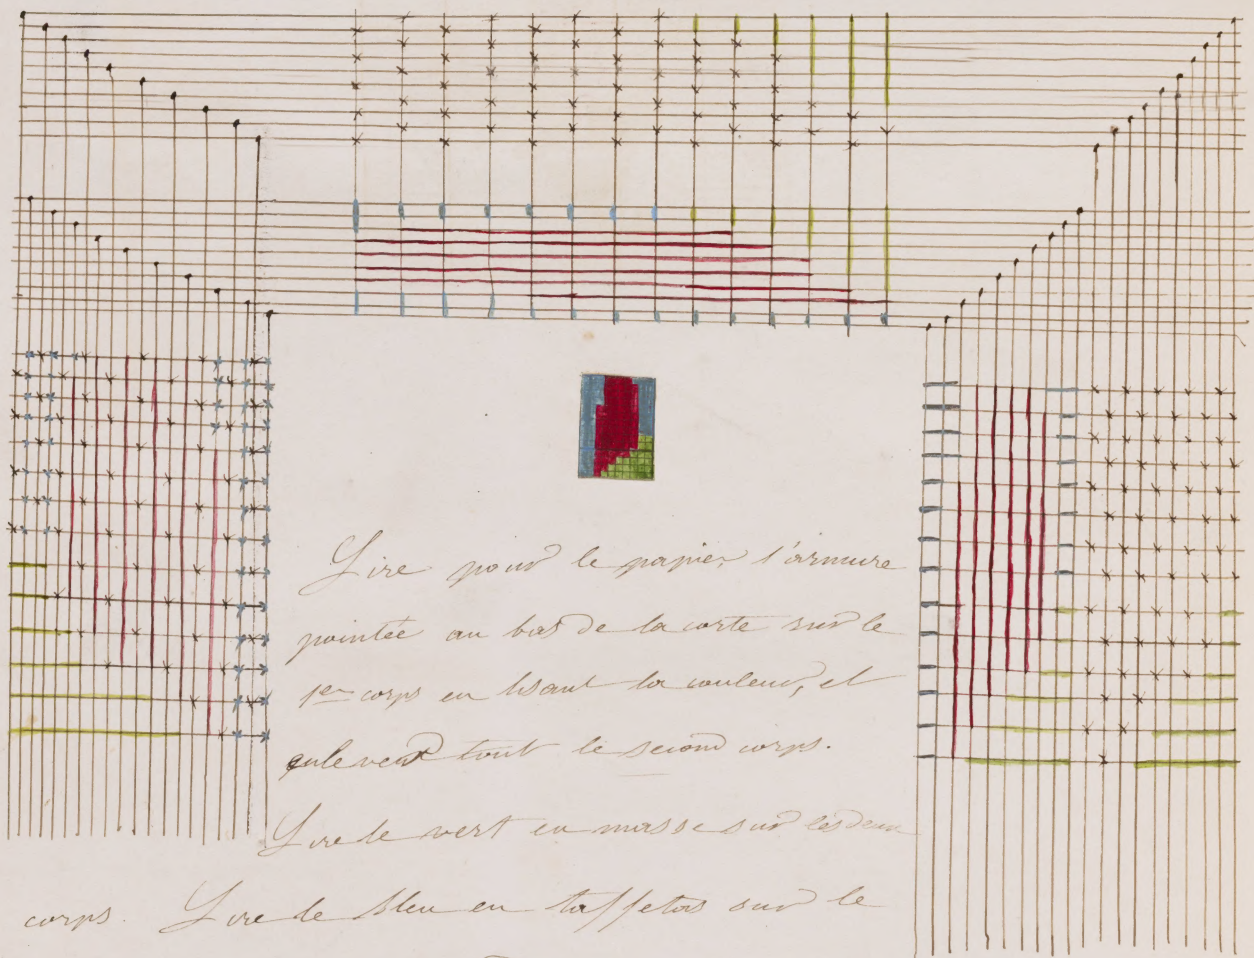 Lire pour le papier l'armure
pointée au bas de la carte sur le
1er corps en lisant la couleur, et
enlevant tout le second corps.
Lire le vert en masse sur les deux
corps. Lire le bleu en taffetas sur le